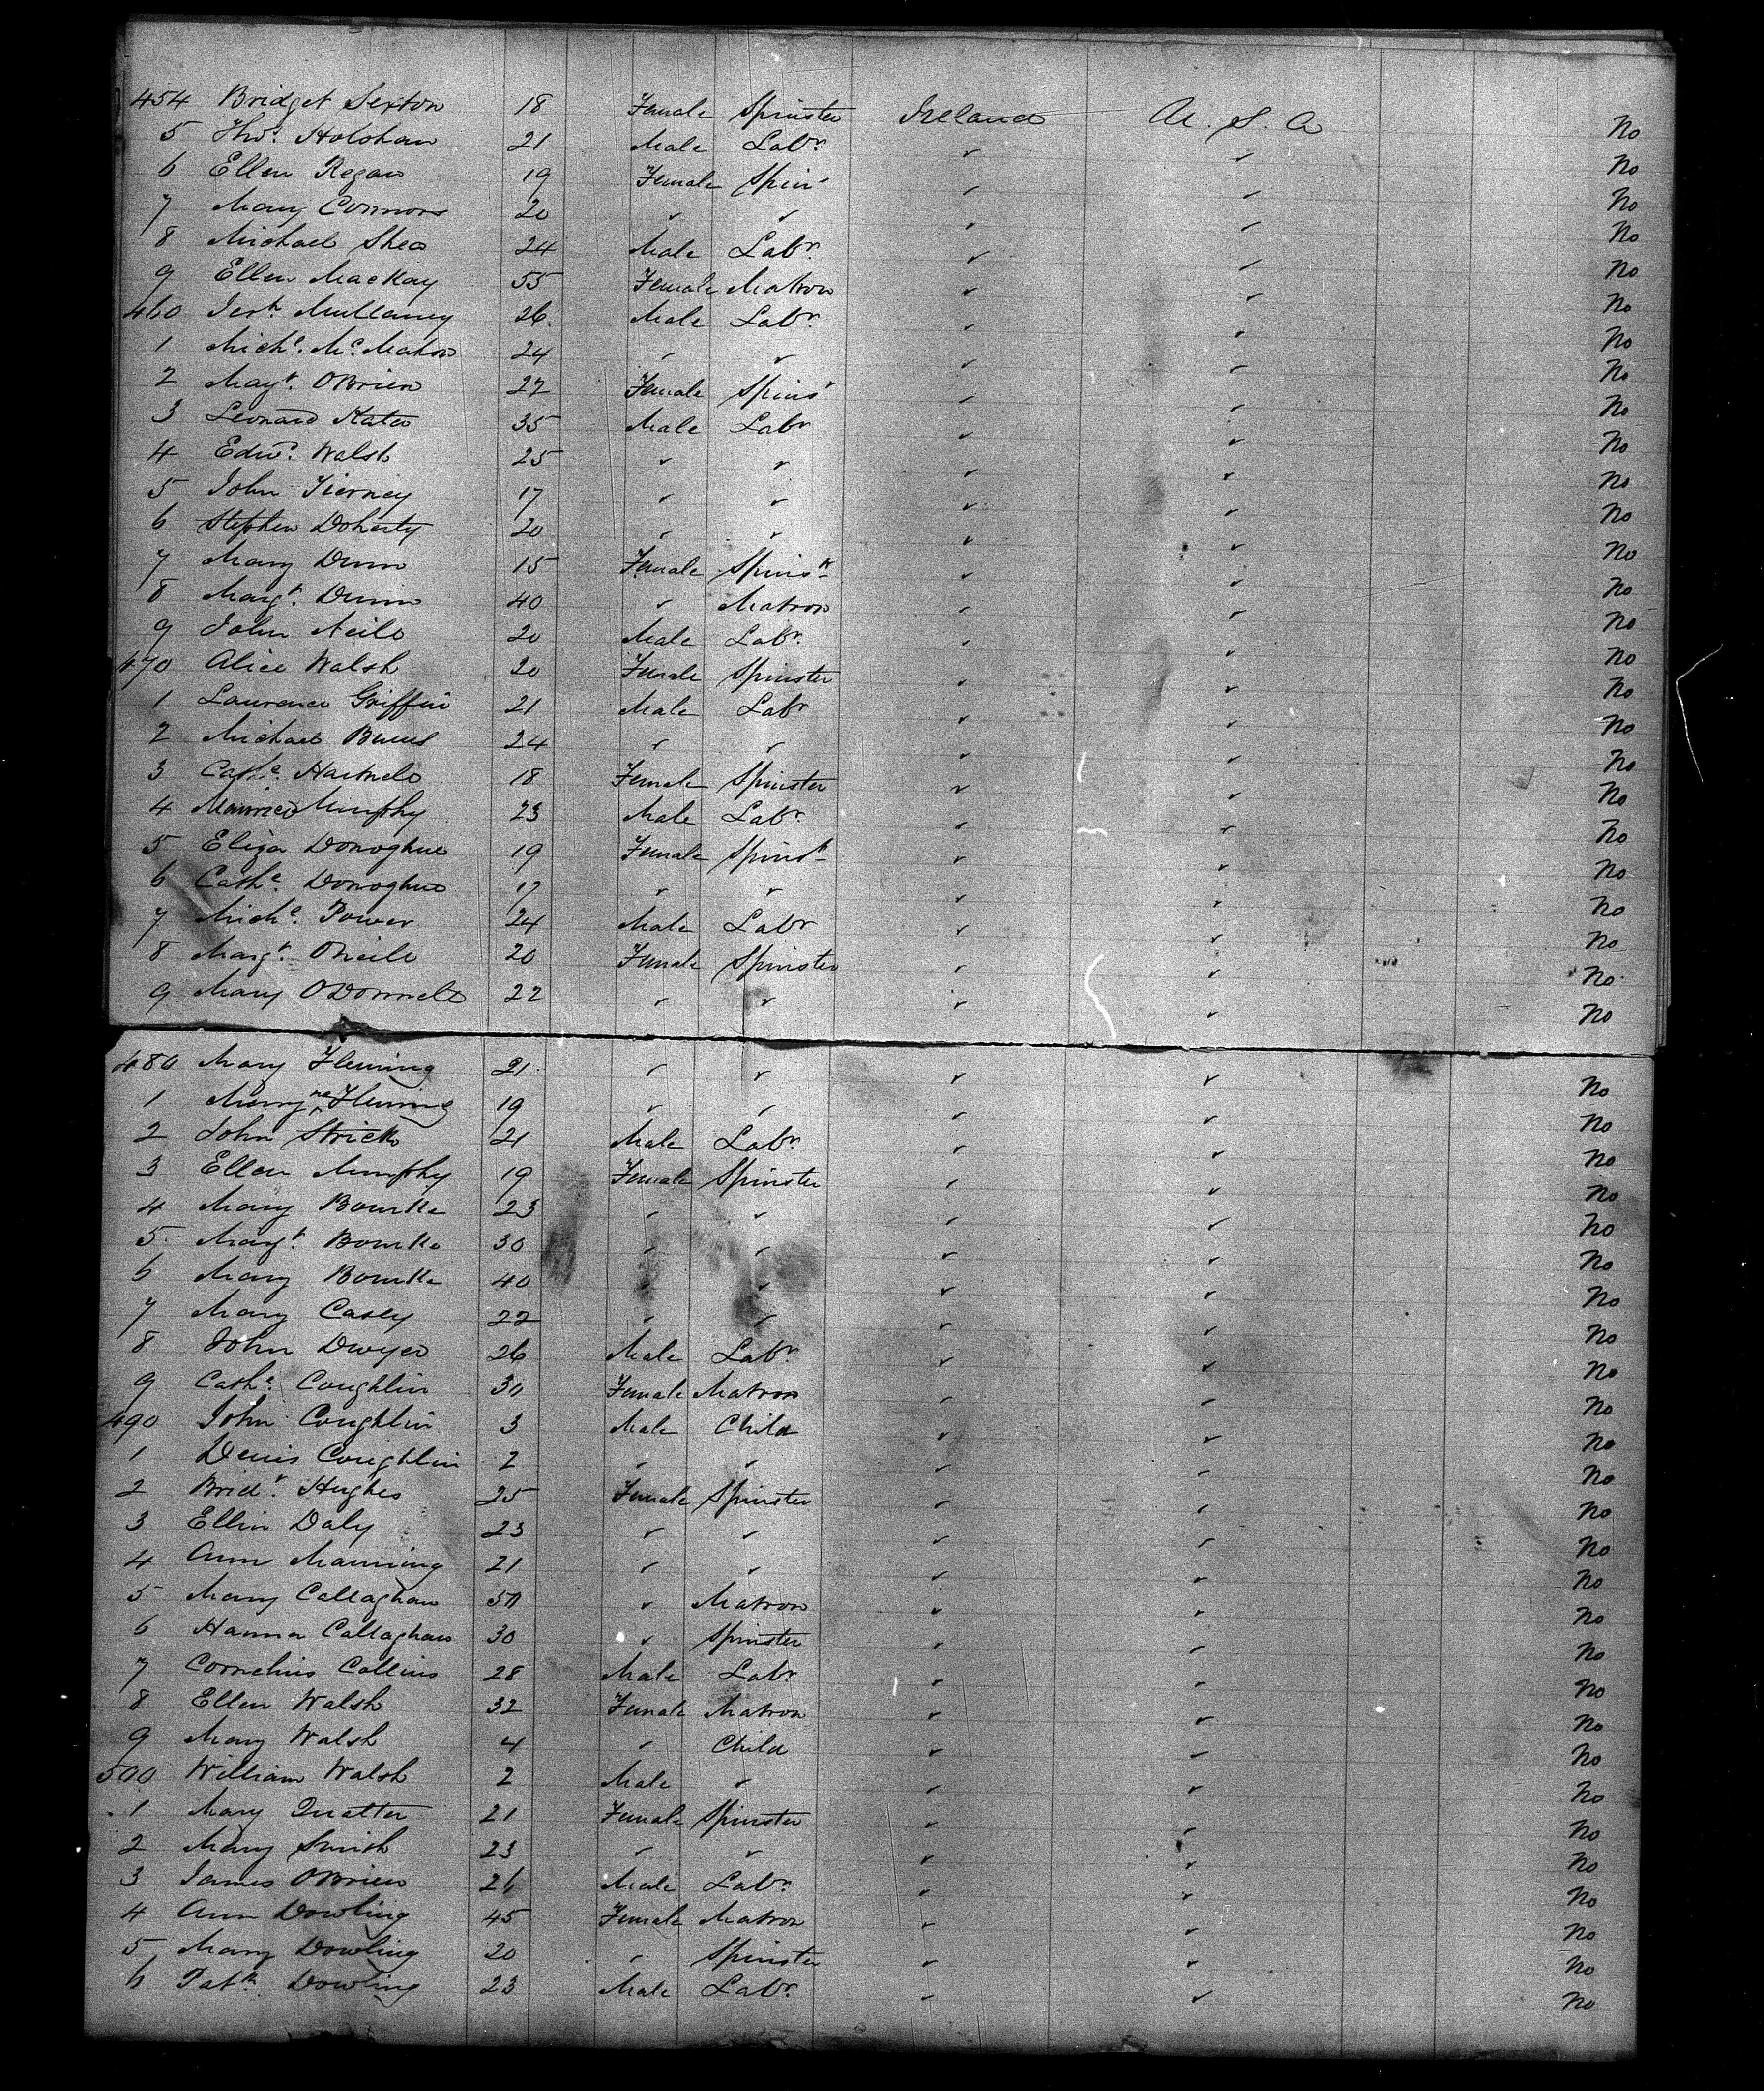 454 Bridget Sexton 18 Female Spinster Ireland U. S. A No
5 Thos. Holohan 21 Male Labr. " " No
6 Ellen Regan 19 Female Spinr " " No
7 Mary Connors 20 " " " " No
8 Michael Shea 24 Male Labr. " " No
9 Ellen Mackay 55 Female Matron " " No
460 Jerh. Mullaney 26. Male Labr. " " No
1 Miche. Mc.Mahon 24 " " " " No
2 Magt. OBrien 22 Female Spinsr " " No
3 Leonard 35 Male Labr " " No
4 Edwd. Walsh 25 " " " " No
5 John Tierney 17 " " " " No
6 Stephen Doherty 20 " " " " No
7 Mary Dunn 15 Female Spinstr " " No
8 Margt. Dunn 40 " Matron " " No
9 John Neile 20 Male Labr. " " No
470 Alice Walsh 20 Female Spinster " " No
1 Laurence Griffin 21 Male Labr " " No
2 Michael Burns 24 " " " " No
3 Cathe. Hartnele 18 Female Spinster " " No
4 Maurice Murphy 23 Male Labr. " " No
5 Eliza Donoghue 19 Female Spinstr " " No
6 Cathe. Donoghue 17 " " " " No
7 Miche. Power 24 Male Labr " " No
8 Margt. ONeile 20 Female Spinster " " No
9 Mary ODonnele 22 " " " " No
480 Mary Fleming 21. " " " " No
1 Mary ne Fleming 19 " " " " No
2 John Strick 21 Male Labr. " " No
3 Ellen Murphy 19 Female Spinster " " No
4 Mary Bourke 23 " " " " No
5. Magt. Bourke 30 " " " " No
6 Mary Bourke 40 " " " " No
7 Mary Casey 22 " " " " No
8 John Dwyer 26 Male Labr. " " No
9 Cathe. Coughlin 30 Female Matron " " No
490 John Coughlin 3 Male Child " " No
1 Denis Coughlin 2 " " " " No
2 Bridt. Hughes 25 Female Spinster " " No
3 Ellin Daly 23 " " " " No
4 Ann Manning 21 " " " " No
5 Mary Callaghan 50 " Matron " " No
6 Hanna Callaghan 30 " Spinster " " No
7 Cornelius Collins 28 Male Labr. " " No
8 Ellen Walsh 32 Female Matron " " No
9 Mary Walsh 4 " Child " " No
500 William Walsh 2 Male " " " No
1 Mary Quatter 21 Female Spinster " " No
2 Mary Smith 23 " " " " No
3 James OBrien 26 Male Labr. " " No
4 Ann Dowling 45 Female Matron " " No
5 Mary Dowling 20 " Spinster " " No
6 Patk. Dowling 23 Male Labr. " " No